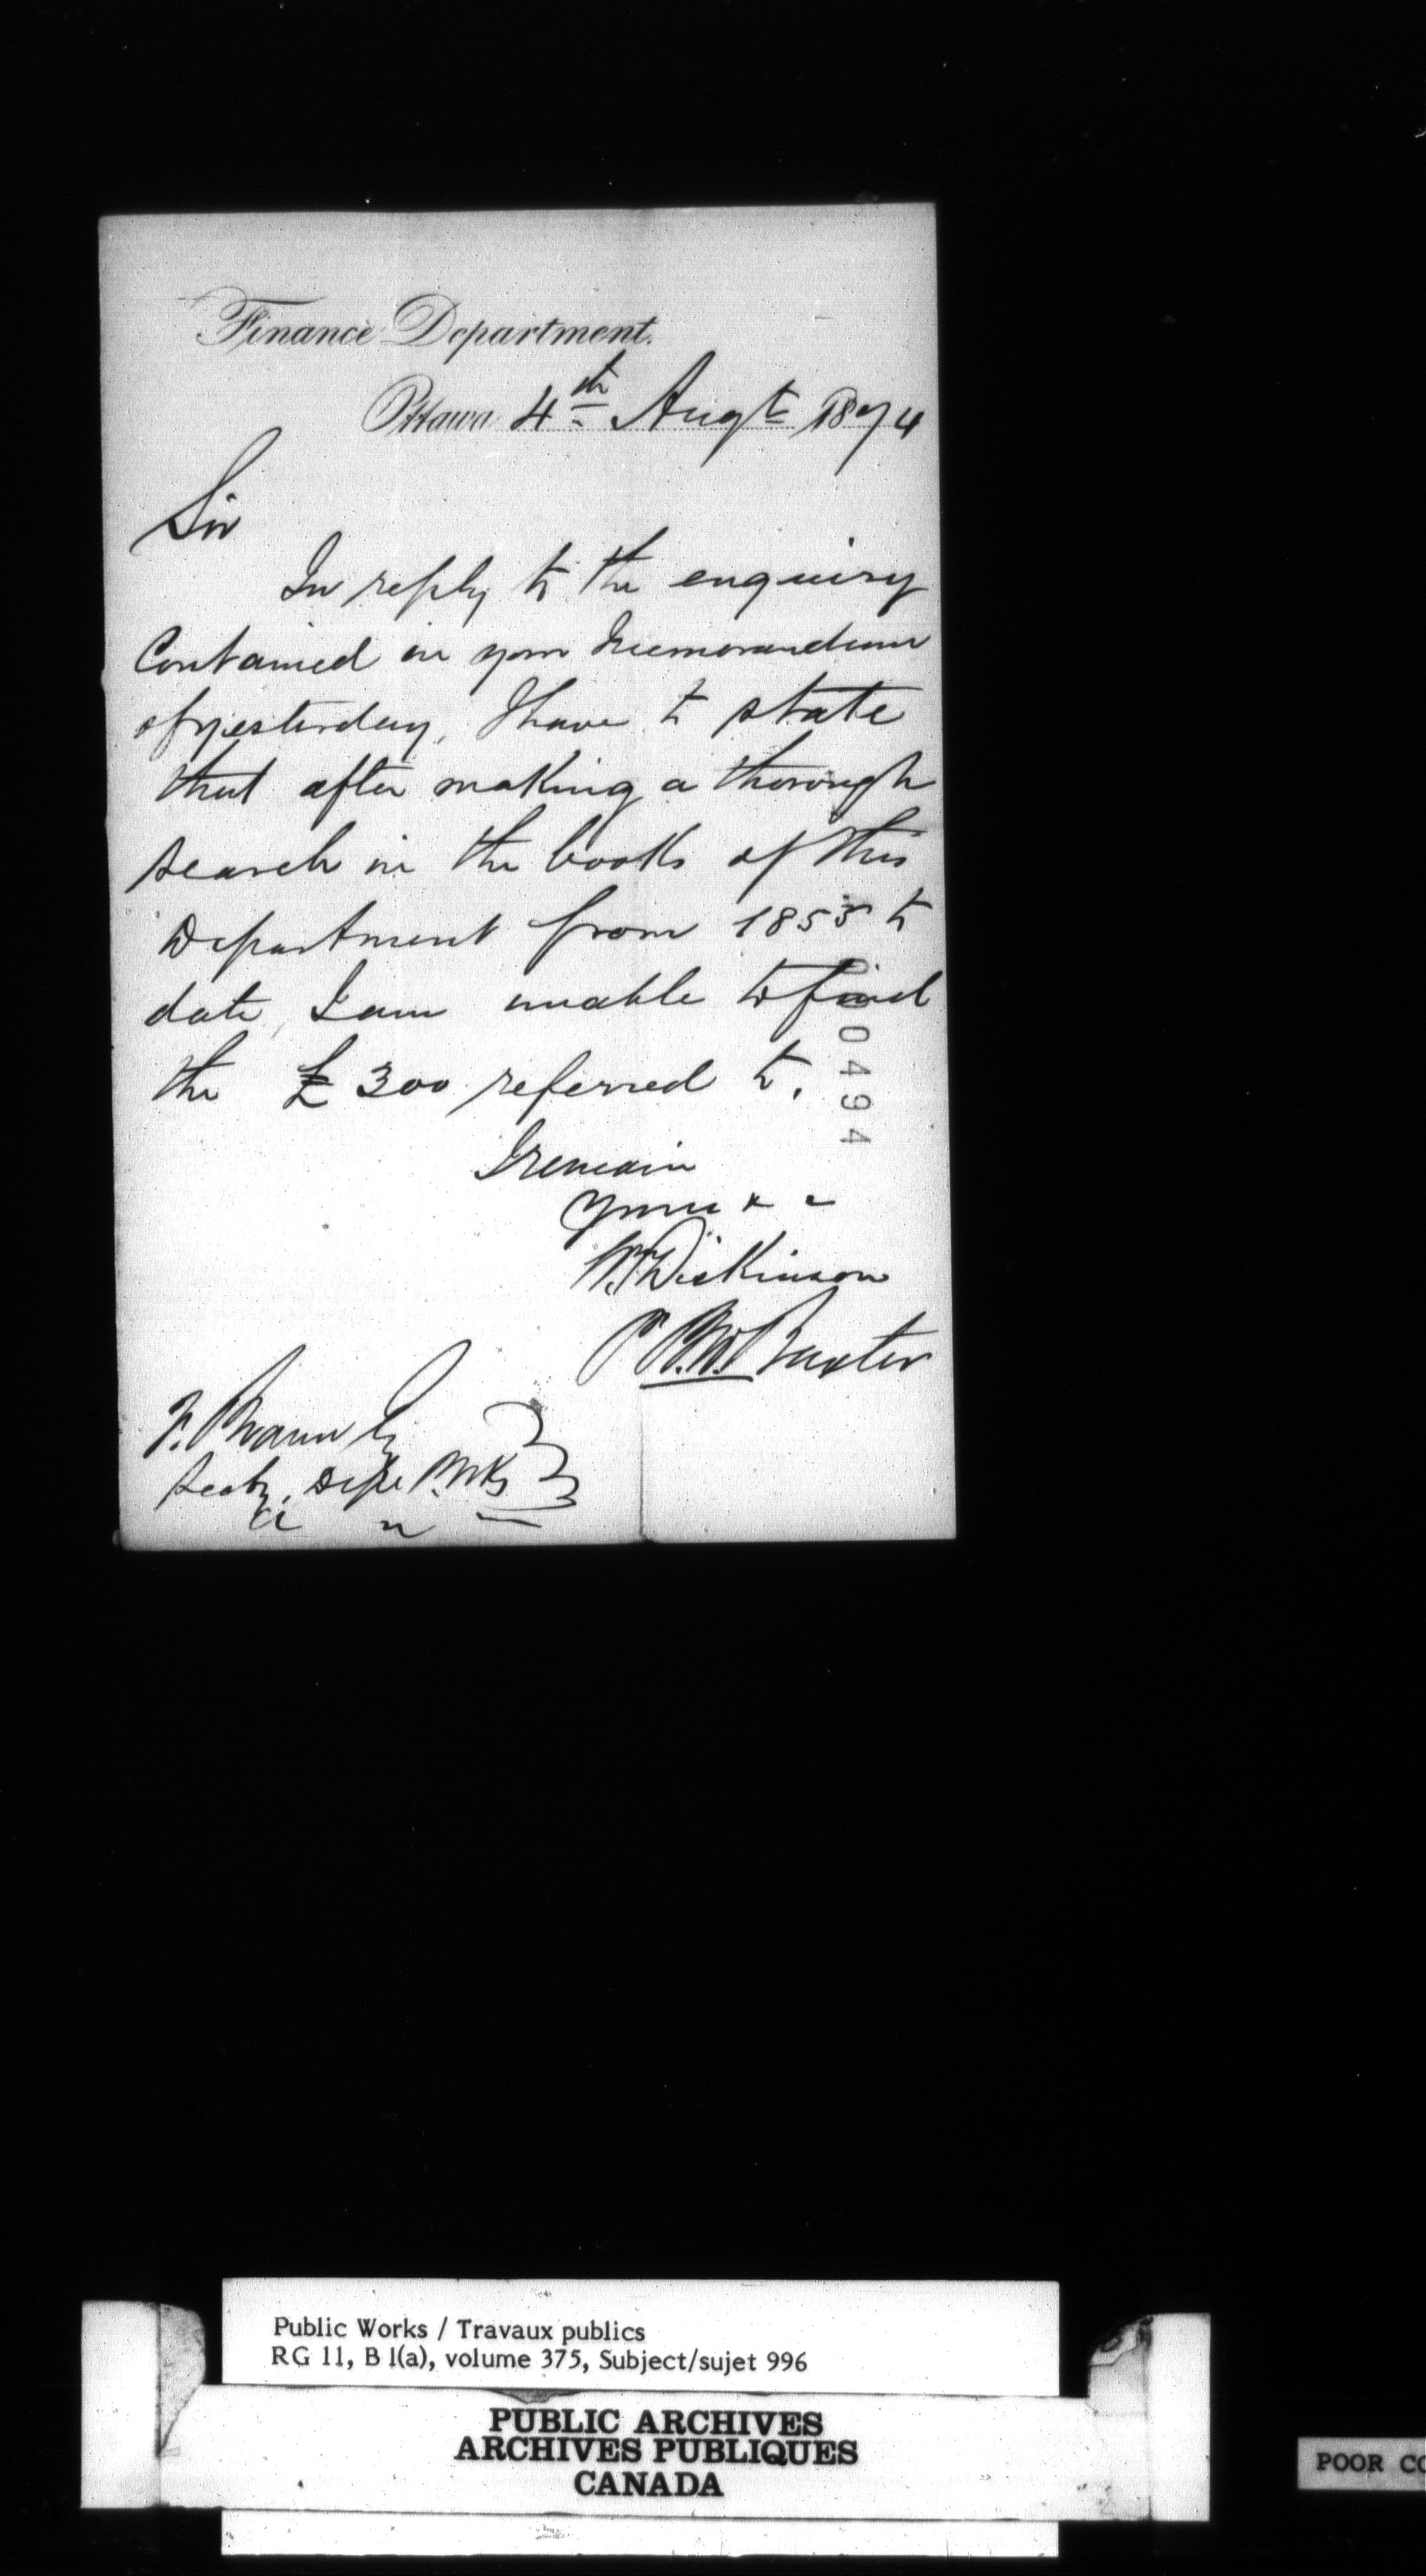 Finance Department.
Ottawa 4th Augt 1874
Sir
In reply to the enquiry
Contained in your Memorandum
of yesterday, I have to state
that after making a thorough
search in the books of this
Department from 1855 to
date, I am unable to find
the £300 referred to.
0494
I remain
Yours
W. Dickinson
P R.W. Baxter
F. Braun Esq
Secty. Dept P. Wks
Public Works / Travaux publics
RG 11, B 1(a), volume 375, Subject/sujet 996
PUBLIC ARCHIVES
ARCHIVES PUBLIQUES
CANADA
POOR CO